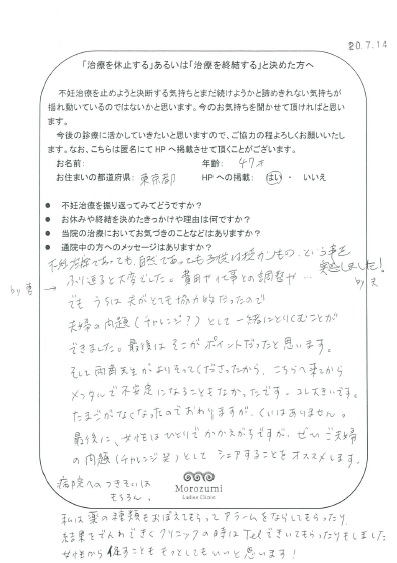 20.7.14
「治療を休止する」あるいは「治療を終結する」と決めた方へ
不妊治療を止めようと決断する気持ちとまだ続けようかと諦めきれない気持ちが
揺れ動いているのではないかと思います。今のお気持ちを聞かせて頂ければと思い
ます。
今後の診療に活かしていきたいと思いますので、ご協力の程よろしくお願いいたし
ます。なお、こちらは匿名にてHPへ掲載させて頂くことがございます。
お名前: 年齢: 47才
お住まいの都道府県: 東京都 HPへの掲載: はい ・ いいえ
● 不妊治療を振り返ってみてどうですか?
● お休みや終結を決めたきっかけや理由は何ですか?
● 当院の治療においてお気づきのことなどはありますか?
● 通院中の方へのメッセージはありますか?
不妊治療であっても、自然であっても子供は授かりもの、という事を
実感しました!
by 夫
by 妻 → ふり返ると大変でした。費用や仕事との調整や…
でも うちは夫がとても協力的だったので
夫婦の問題(チャレンジ?)として一緒にとりくむことが
できました。最後は そこがポイントだったと思います。
そして両角先生がよりそってくださったから、こちらへ来てから
メンタルで不安定になることもなかったです。コレ大きいです。
たまごがなくなったのでおわりますが、くいはありません。
最後に、女性はひとりでかかえがちですが、ぜひご夫婦
の問題(チャレンジ)として シェアすることをオススメします。
病院へのつきそいは
もちろん、
Morozumi
Ladies Clinic
私は薬の種類もおぼえてもらってアラームをならしてもらったり
結果をでんわできくクリニックの時はTelできいてもらったりもしました
女性から促すことも もっとしてもいいと思います!